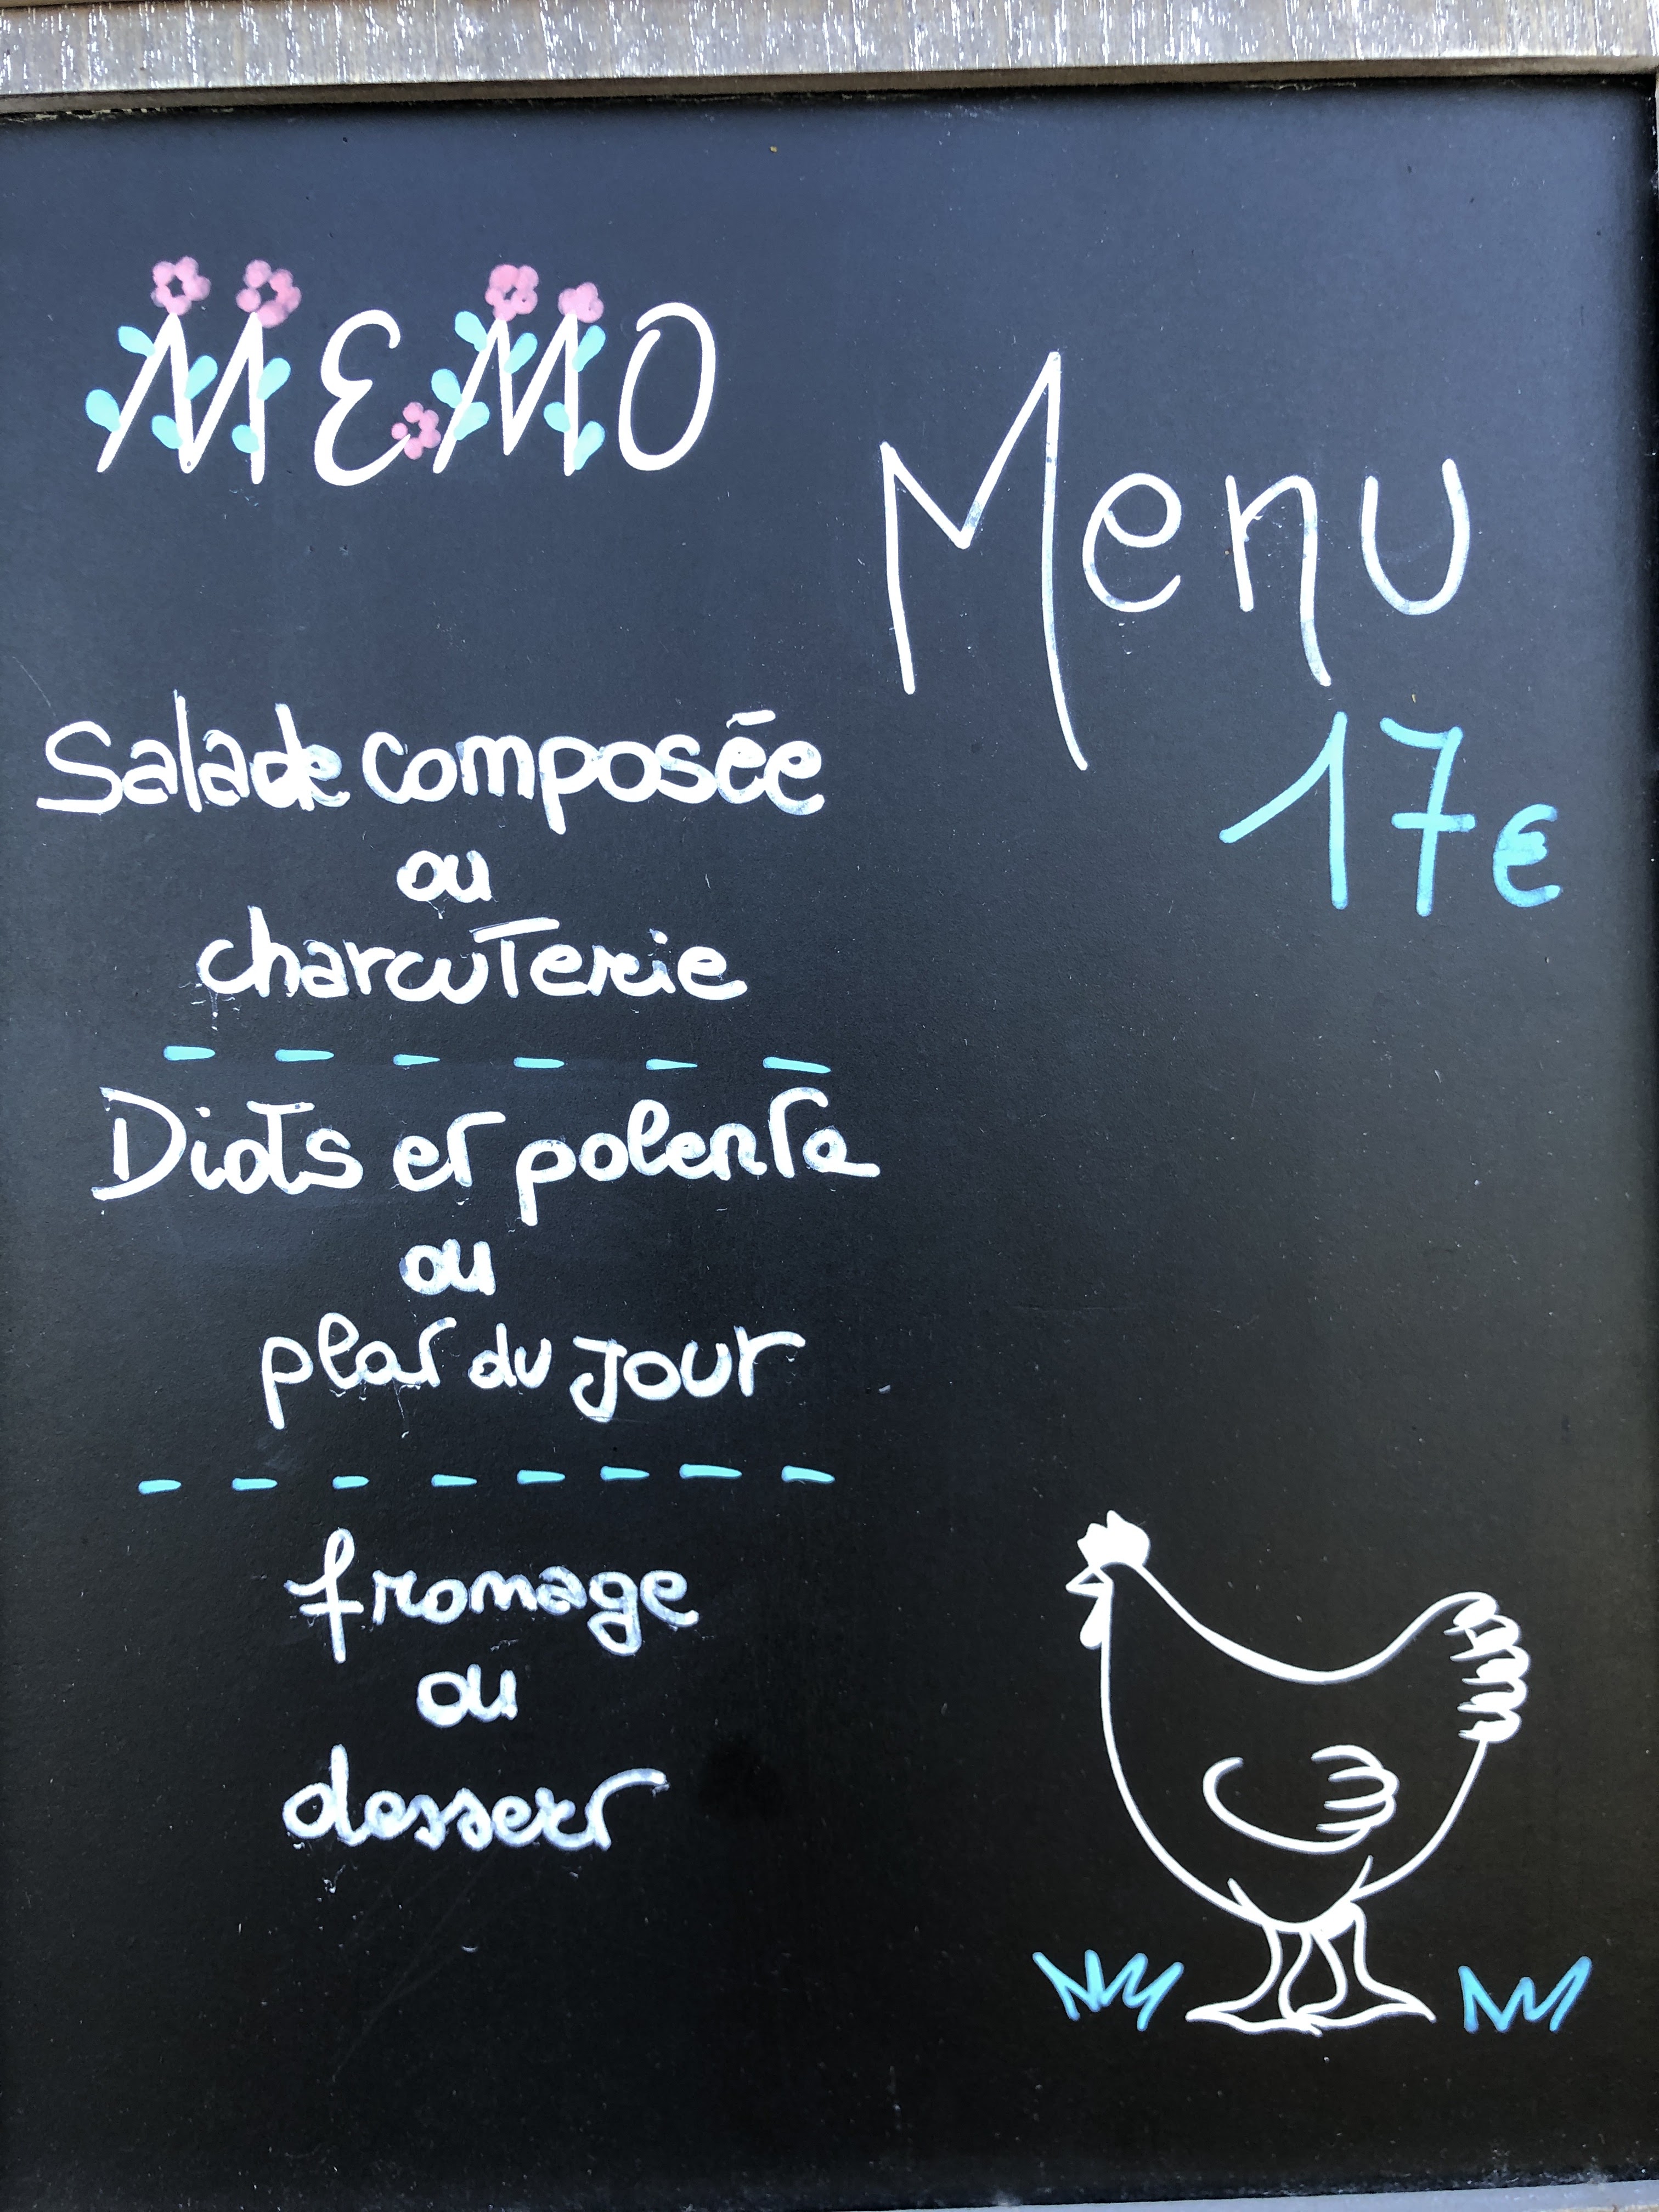 MEMO
Menu
17€
Salade composée
ou
charcuterie
Diots et polenta
ou
plat du jour
fromage
ou
dessert